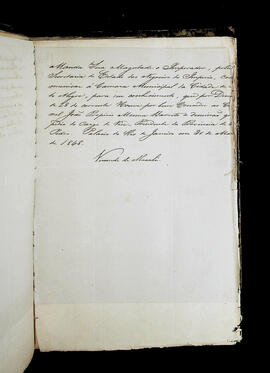 Manda Sua Magestade o Imperador, pela
Secretaria de Estado dos Negocios do Imperio, com-
municar á Camara Municipal da Cidade de
Alegre, para seu conhecimento, que por
de 28 do corrente Houve por bem Conceder ao
João Propicio Menna Barreto a demissão
pedio do Cargo de Vice-Presidente da Provincia de
Pedro. Palacio do Rio de Janeiro em 31 de
de 1848.
Visconde de Macahé